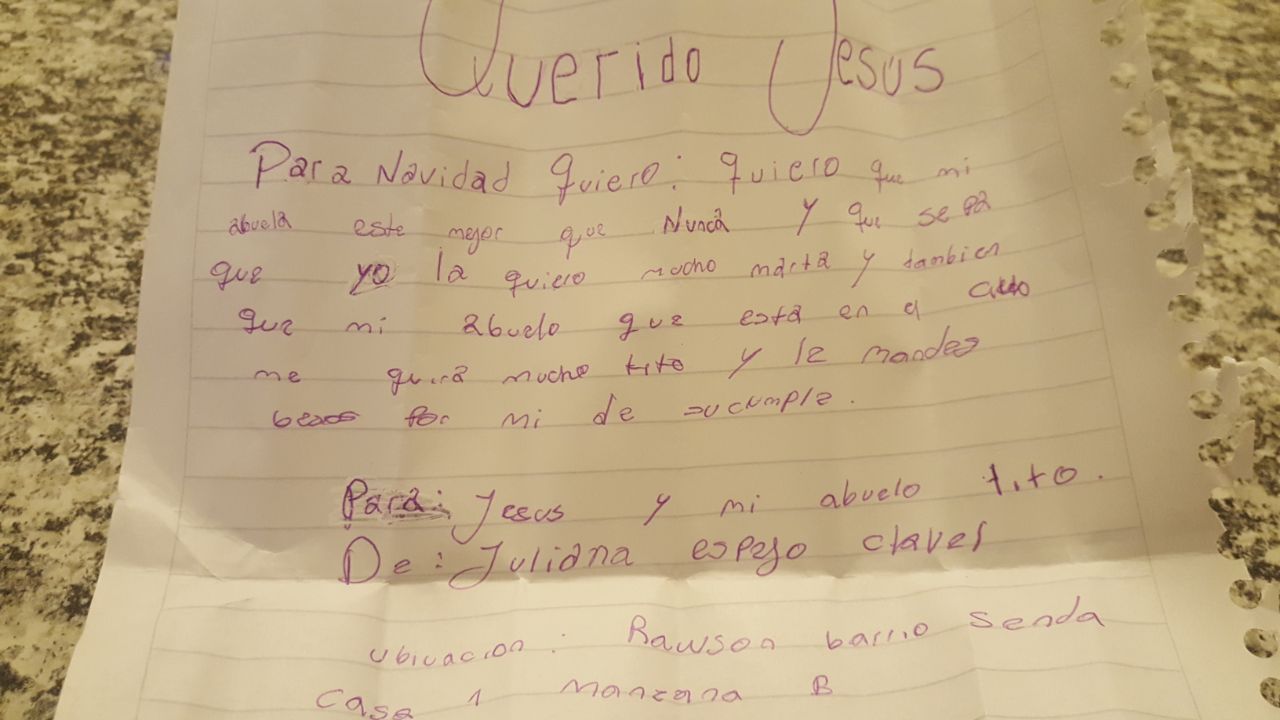 Querido Jesus
Para Navidad quiero: quiero que mi
abuela este mejor que Nunca y que sepa
que yo la quiero mucho marta y tambien
que mi abuelo que esta en el
me mucho tito y le mandes
besos por mi de sucumple.
Para: Jesus y mi abuelo tito.
De: Juliana espejo clavel
ubicacion: Rawson barrio Senda
Casa 1 manzana B